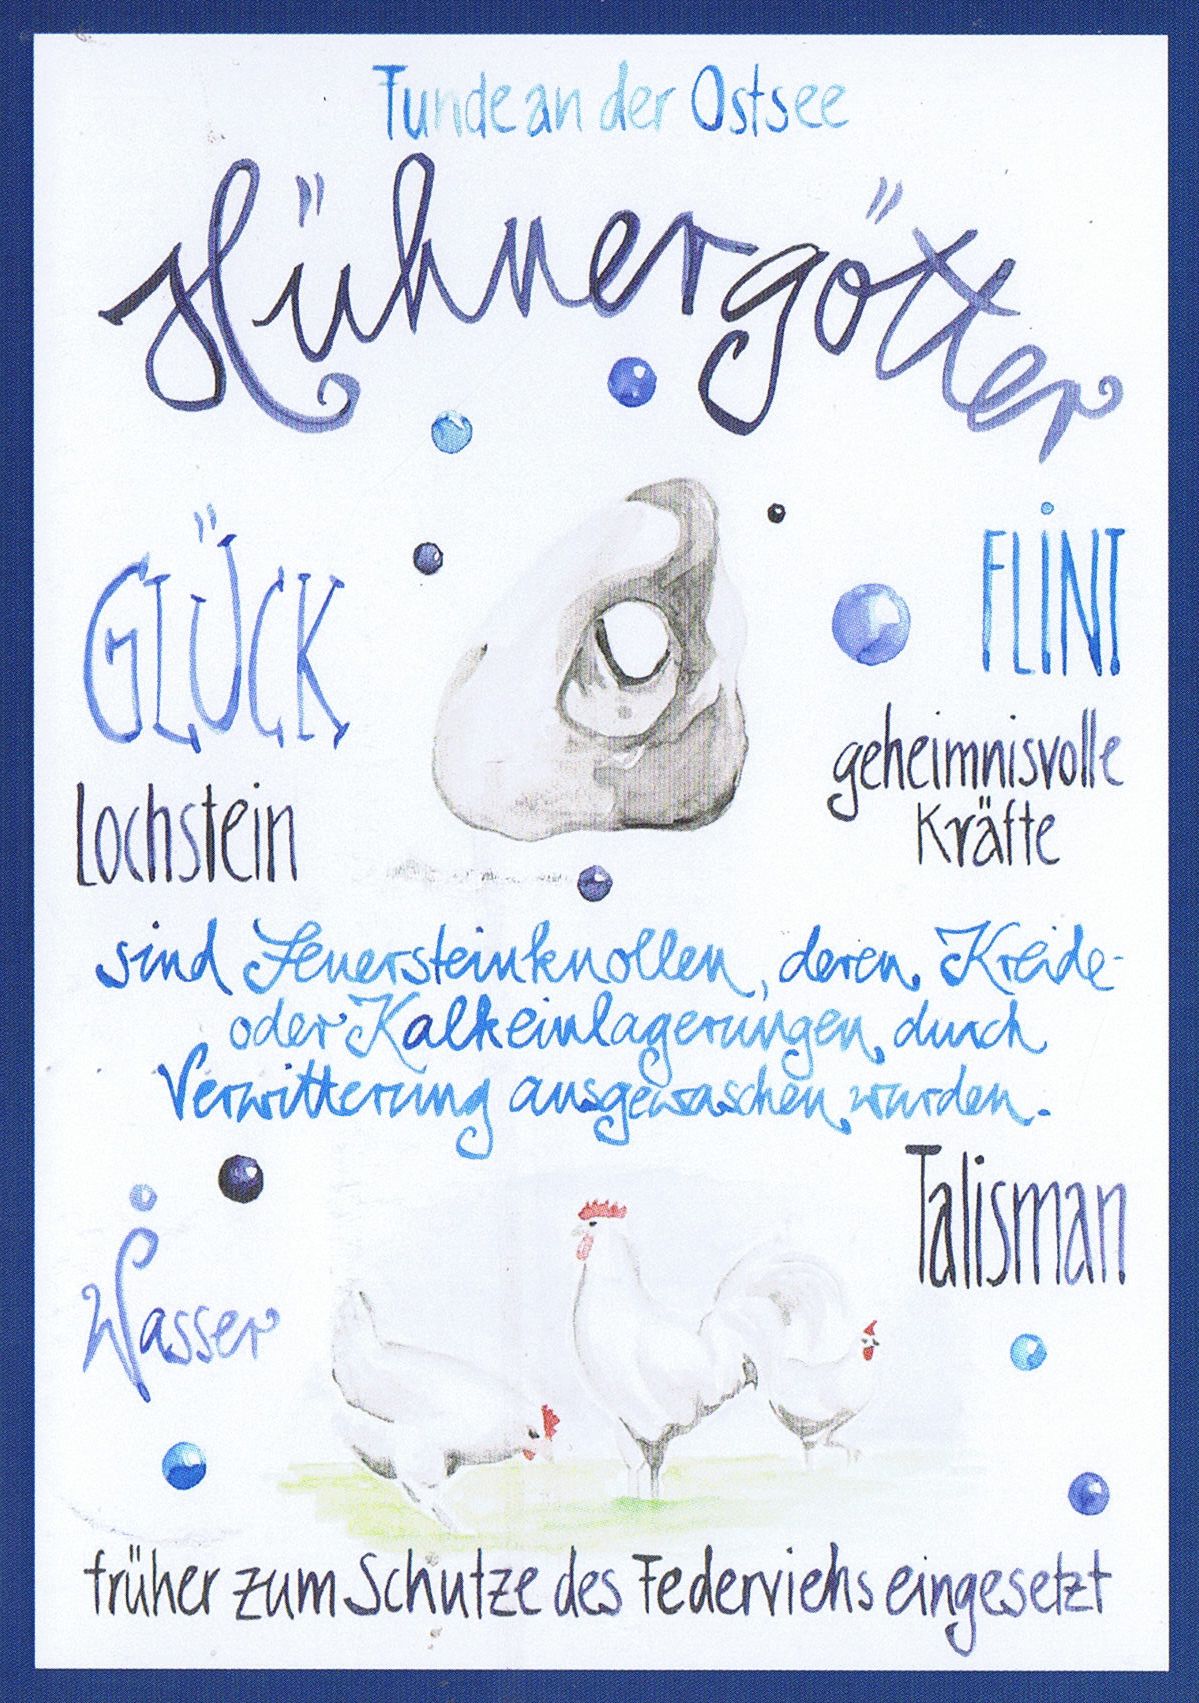 Funde an der Ostsee
Hühnergötter
GLÜCK
FLINT
Lochstein
geheimnisvolle
Kräfte
sind Feuersteinknollen, deren Kreide-
oder Kalkeinlagerungen durch
Verwitterung ausgewaschen wurden.
Wasser
Talisman
früher zum Schutze des Federviehs eingesetzt